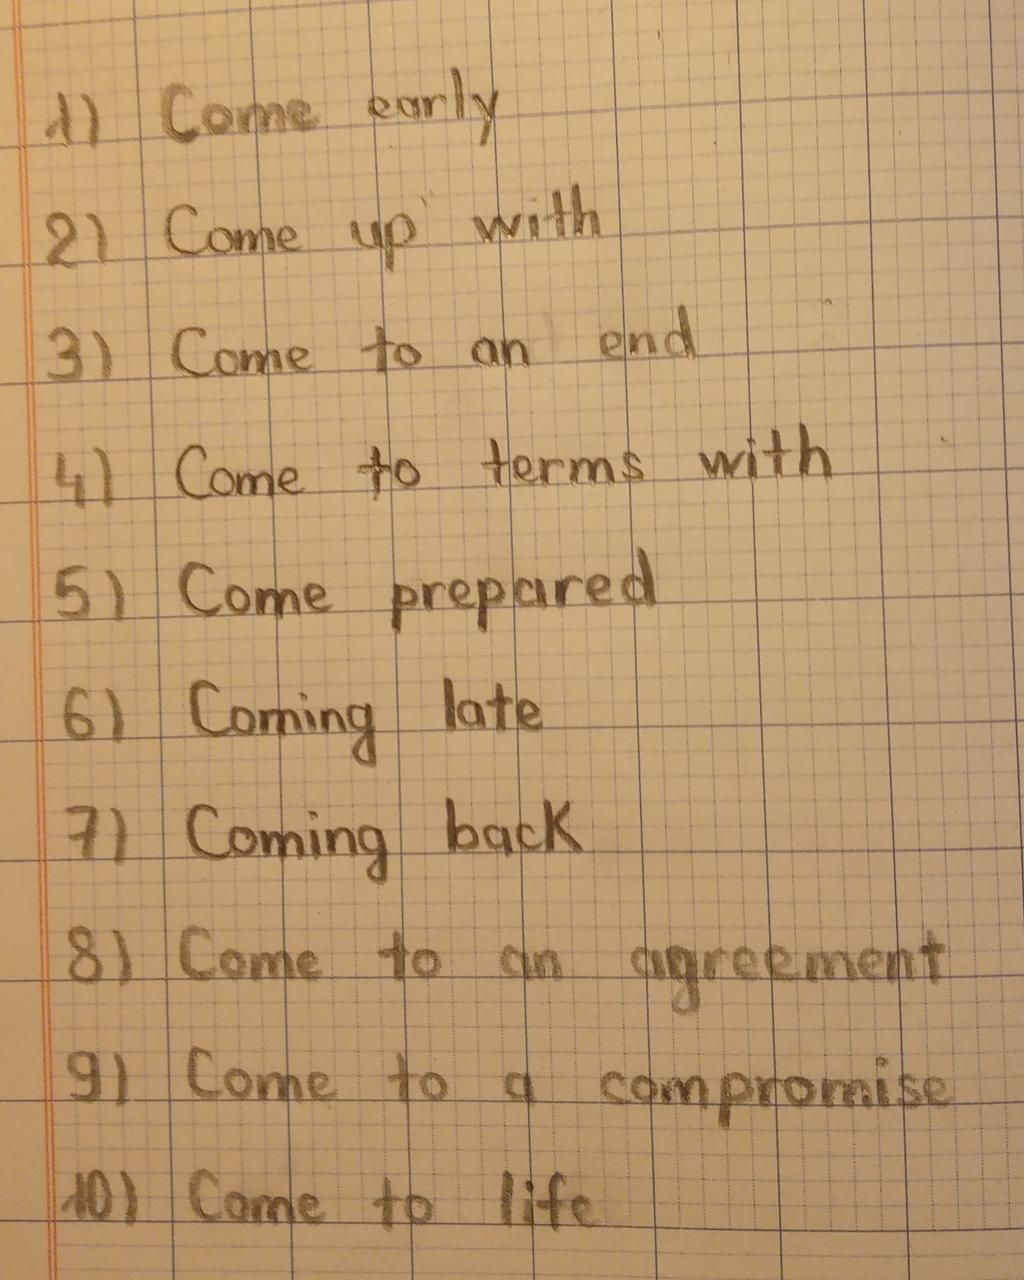 1) Come early
2) Come up with
3) Come to an end
4) Come to terms with
5) Come prepared
6) Coming late
7) Coming back
8) Come to an agreement
9) Come to a compromise
10) Come to life